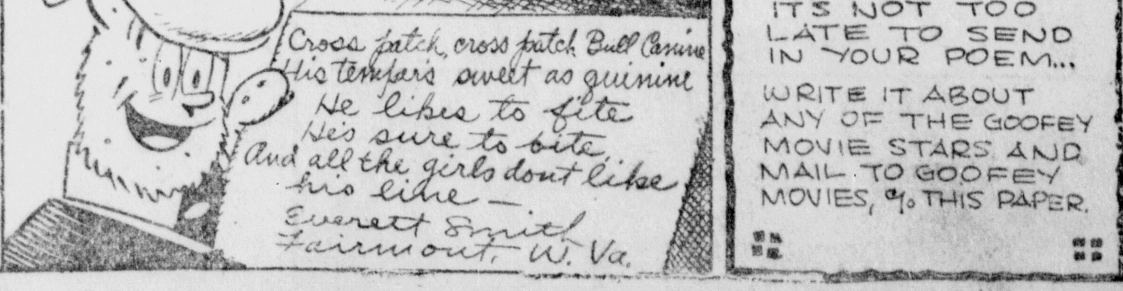 Cross patch, cross patch Bull Canine
His temper's sweet as quinine
He likes to fite
He's sure to bite,
And all the girls dont like
his line —
Everett Smith
Fairmont, W. Va.
ITS NOT TOO
LATE TO SEND
IN YOUR POEM...
WRITE IT ABOUT
ANY OF THE GOOFEY
MOVIE STARS AND
MAIL TO GOOFEY
MOVIES, % THIS PAPER.